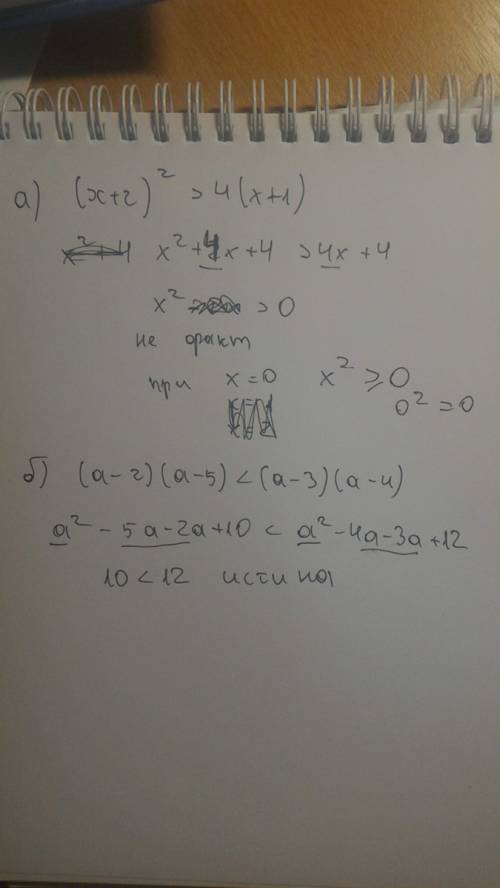 а) (x+2)² > 4(x+1)
x²+4x+4 > 4x+4
x² > 0
не факт
при x=0 x² ≥ 0
0² = 0
б) (a-2)(a-5) < (a-3)(a-4)
a² - 5a - 2a + 10 < a² - 4a - 3a + 12
10 < 12 истина